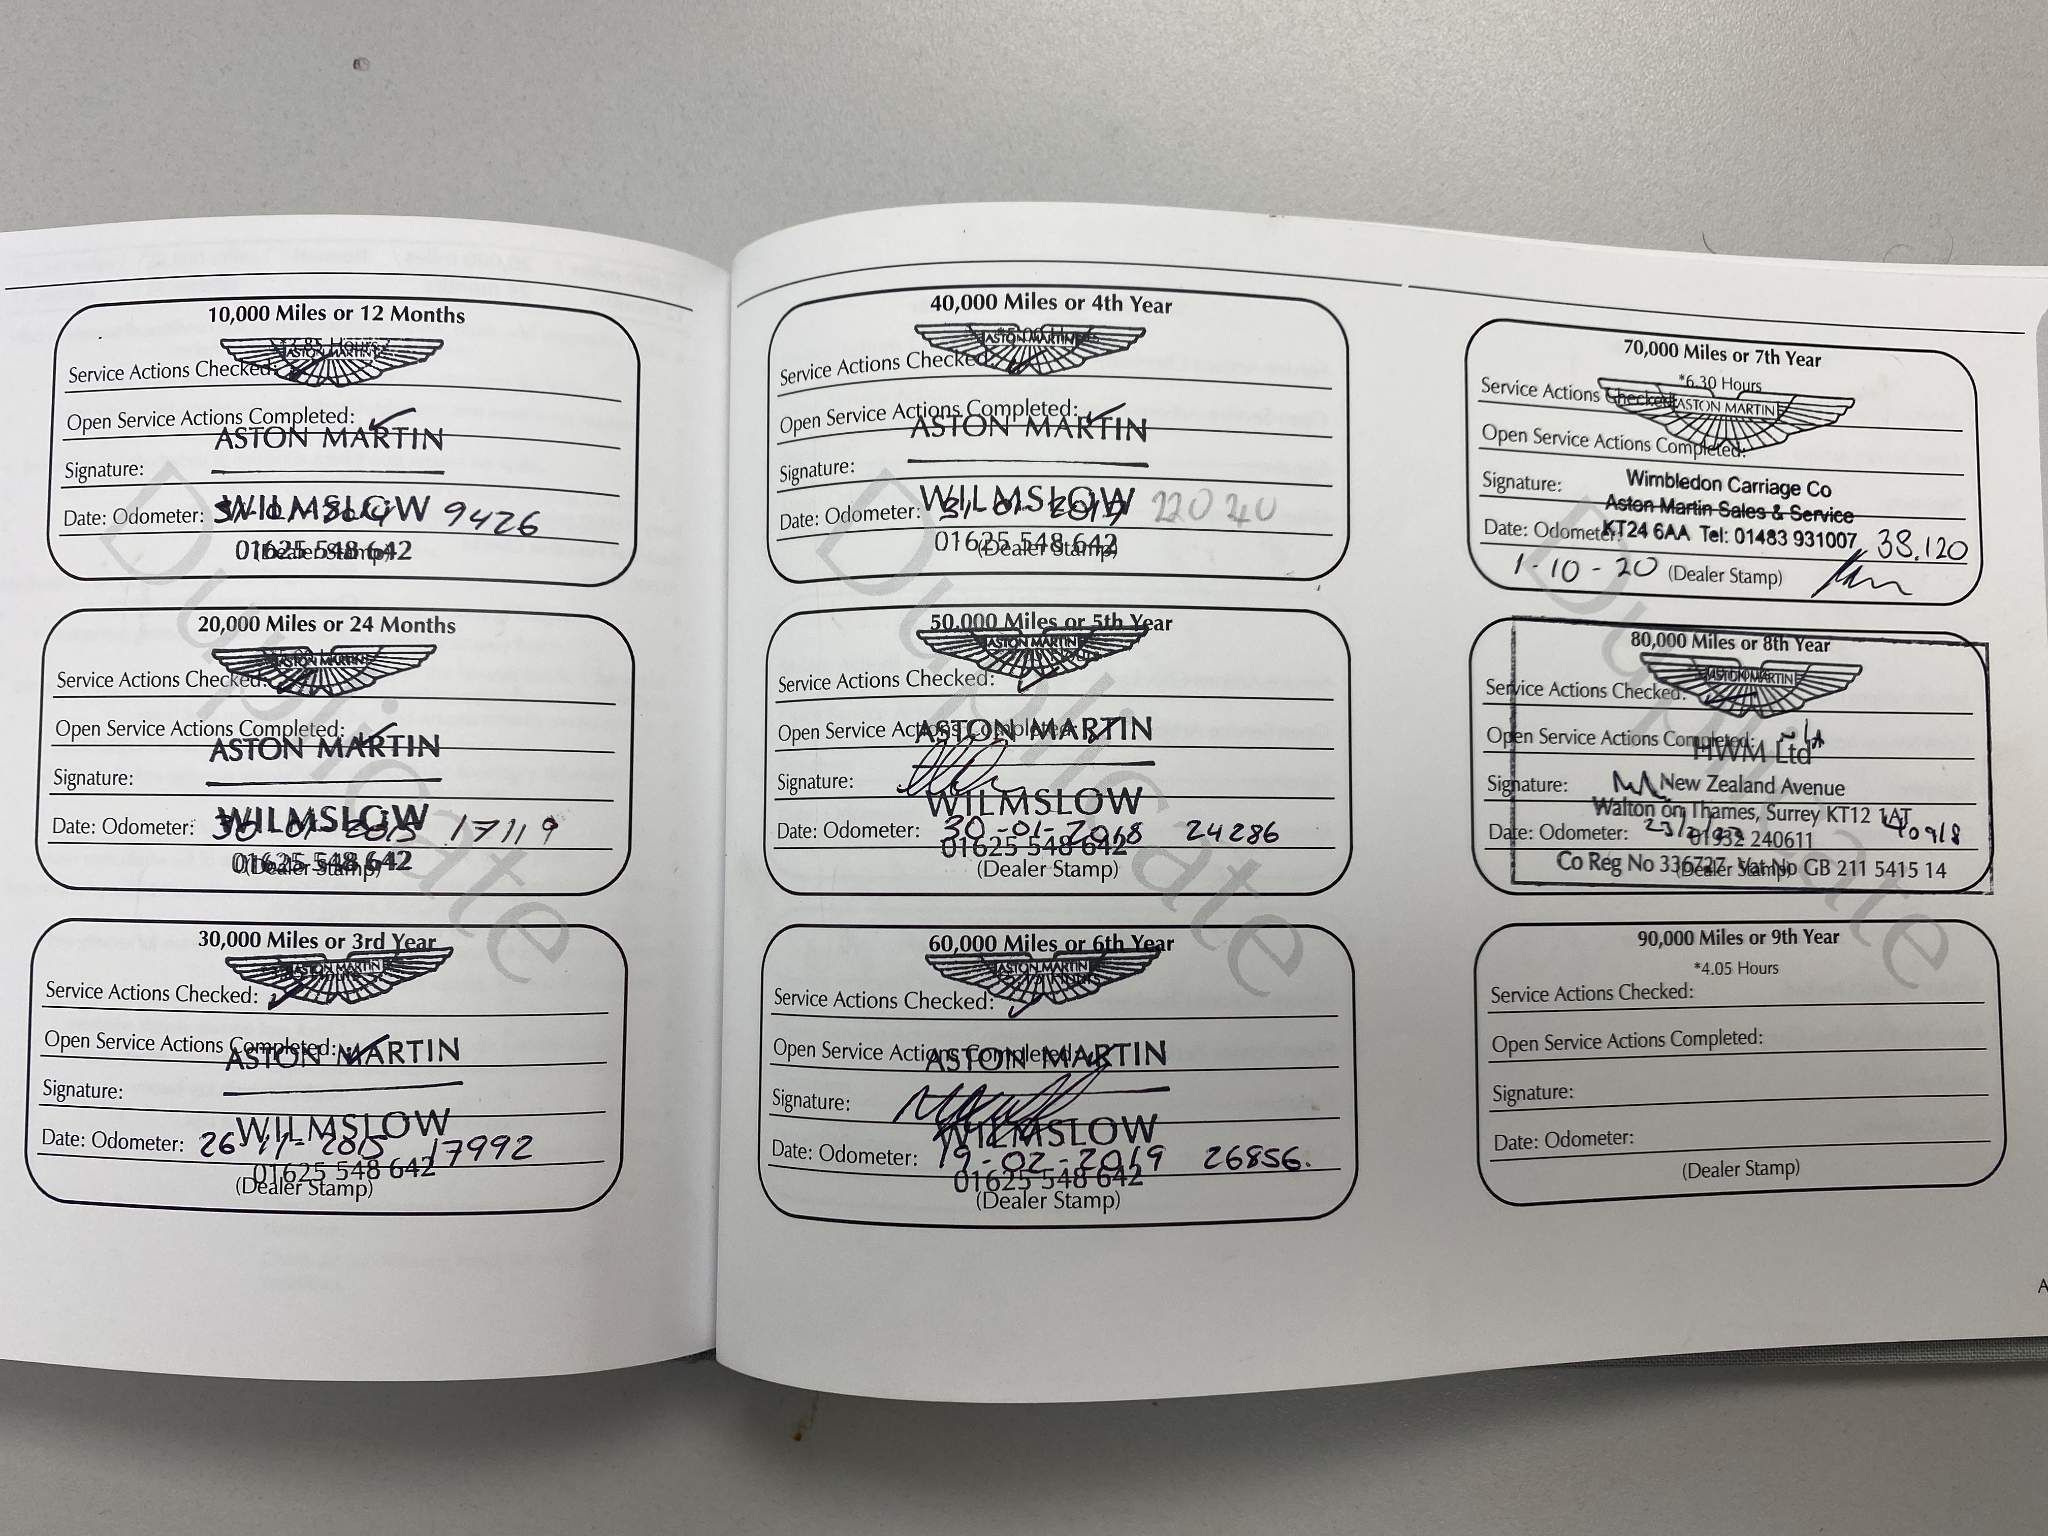 10,000 Miles or 12 Months
ASTON MARTIN
Service Actions Checked:
Open Service Actions Completed:
ASTON MARTIN
Signature:
WILMSLOW
Date: Odometer: 9426
01625 548 642
(Dealer Stamp)
20,000 Miles or 24 Months
ASTON MARTIN
Service Actions Checked:
Open Service Actions Completed:
ASTON MARTIN
Signature:
WILMSLOW
Date: Odometer: 30-01-2015 17119
01625 548 642
(Dealer Stamp)
30,000 Miles or 3rd Year
ASTON MARTIN
Service Actions Checked:
Open Service Actions Completed:
ASTON MARTIN
Signature:
WILMSLOW
Date: Odometer: 26-11-2015 17992
01625 548 642
(Dealer Stamp)
Duplicate
40,000 Miles or 4th Year
ASTON MARTIN
Service Actions Checked:
Open Service Actions Completed:
ASTON MARTIN
Signature:
WILMSLOW
Date: Odometer: 31-01-2017 22040
01625 548 642
(Dealer Stamp)
50,000 Miles or 5th Year
ASTON MARTIN
Service Actions Checked:
Open Service Actions Completed:
ASTON MARTIN
Signature:
WILMSLOW
Date: Odometer: 30-01-2018 24286
01625 548 642
(Dealer Stamp)
60,000 Miles or 6th Year
ASTON MARTIN
Service Actions Checked:
Open Service Actions Completed:
ASTON MARTIN
Signature:
WILMSLOW
Date: Odometer: 19-02-2019 26856.
01625 548 642
(Dealer Stamp)
Duplicate
70,000 Miles or 7th Year
*6.30 Hours
Service Actions Checked:
ASTON MARTIN
Open Service Actions Completed:
Signature:
Wimbledon Carriage Co
Aston Martin Sales & Service
Date: Odometer:
KT24 6AA Tel: 01483 931007
38.120
1-10-20
(Dealer Stamp)
80,000 Miles or 8th Year
ASTON MARTIN
Service Actions Checked:
Open Service Actions Completed:
HWM Ltd
Signature:
New Zealand Avenue
Walton on Thames, Surrey KT12 1AT
Date: Odometer: 40918
01932 240611
Co Reg No 336727 Vat No GB 211 5415 14
(Dealer Stamp)
90,000 Miles or 9th Year
*4.05 Hours
Service Actions Checked:
Open Service Actions Completed:
Signature:
Date: Odometer:
(Dealer Stamp)
Duplicate